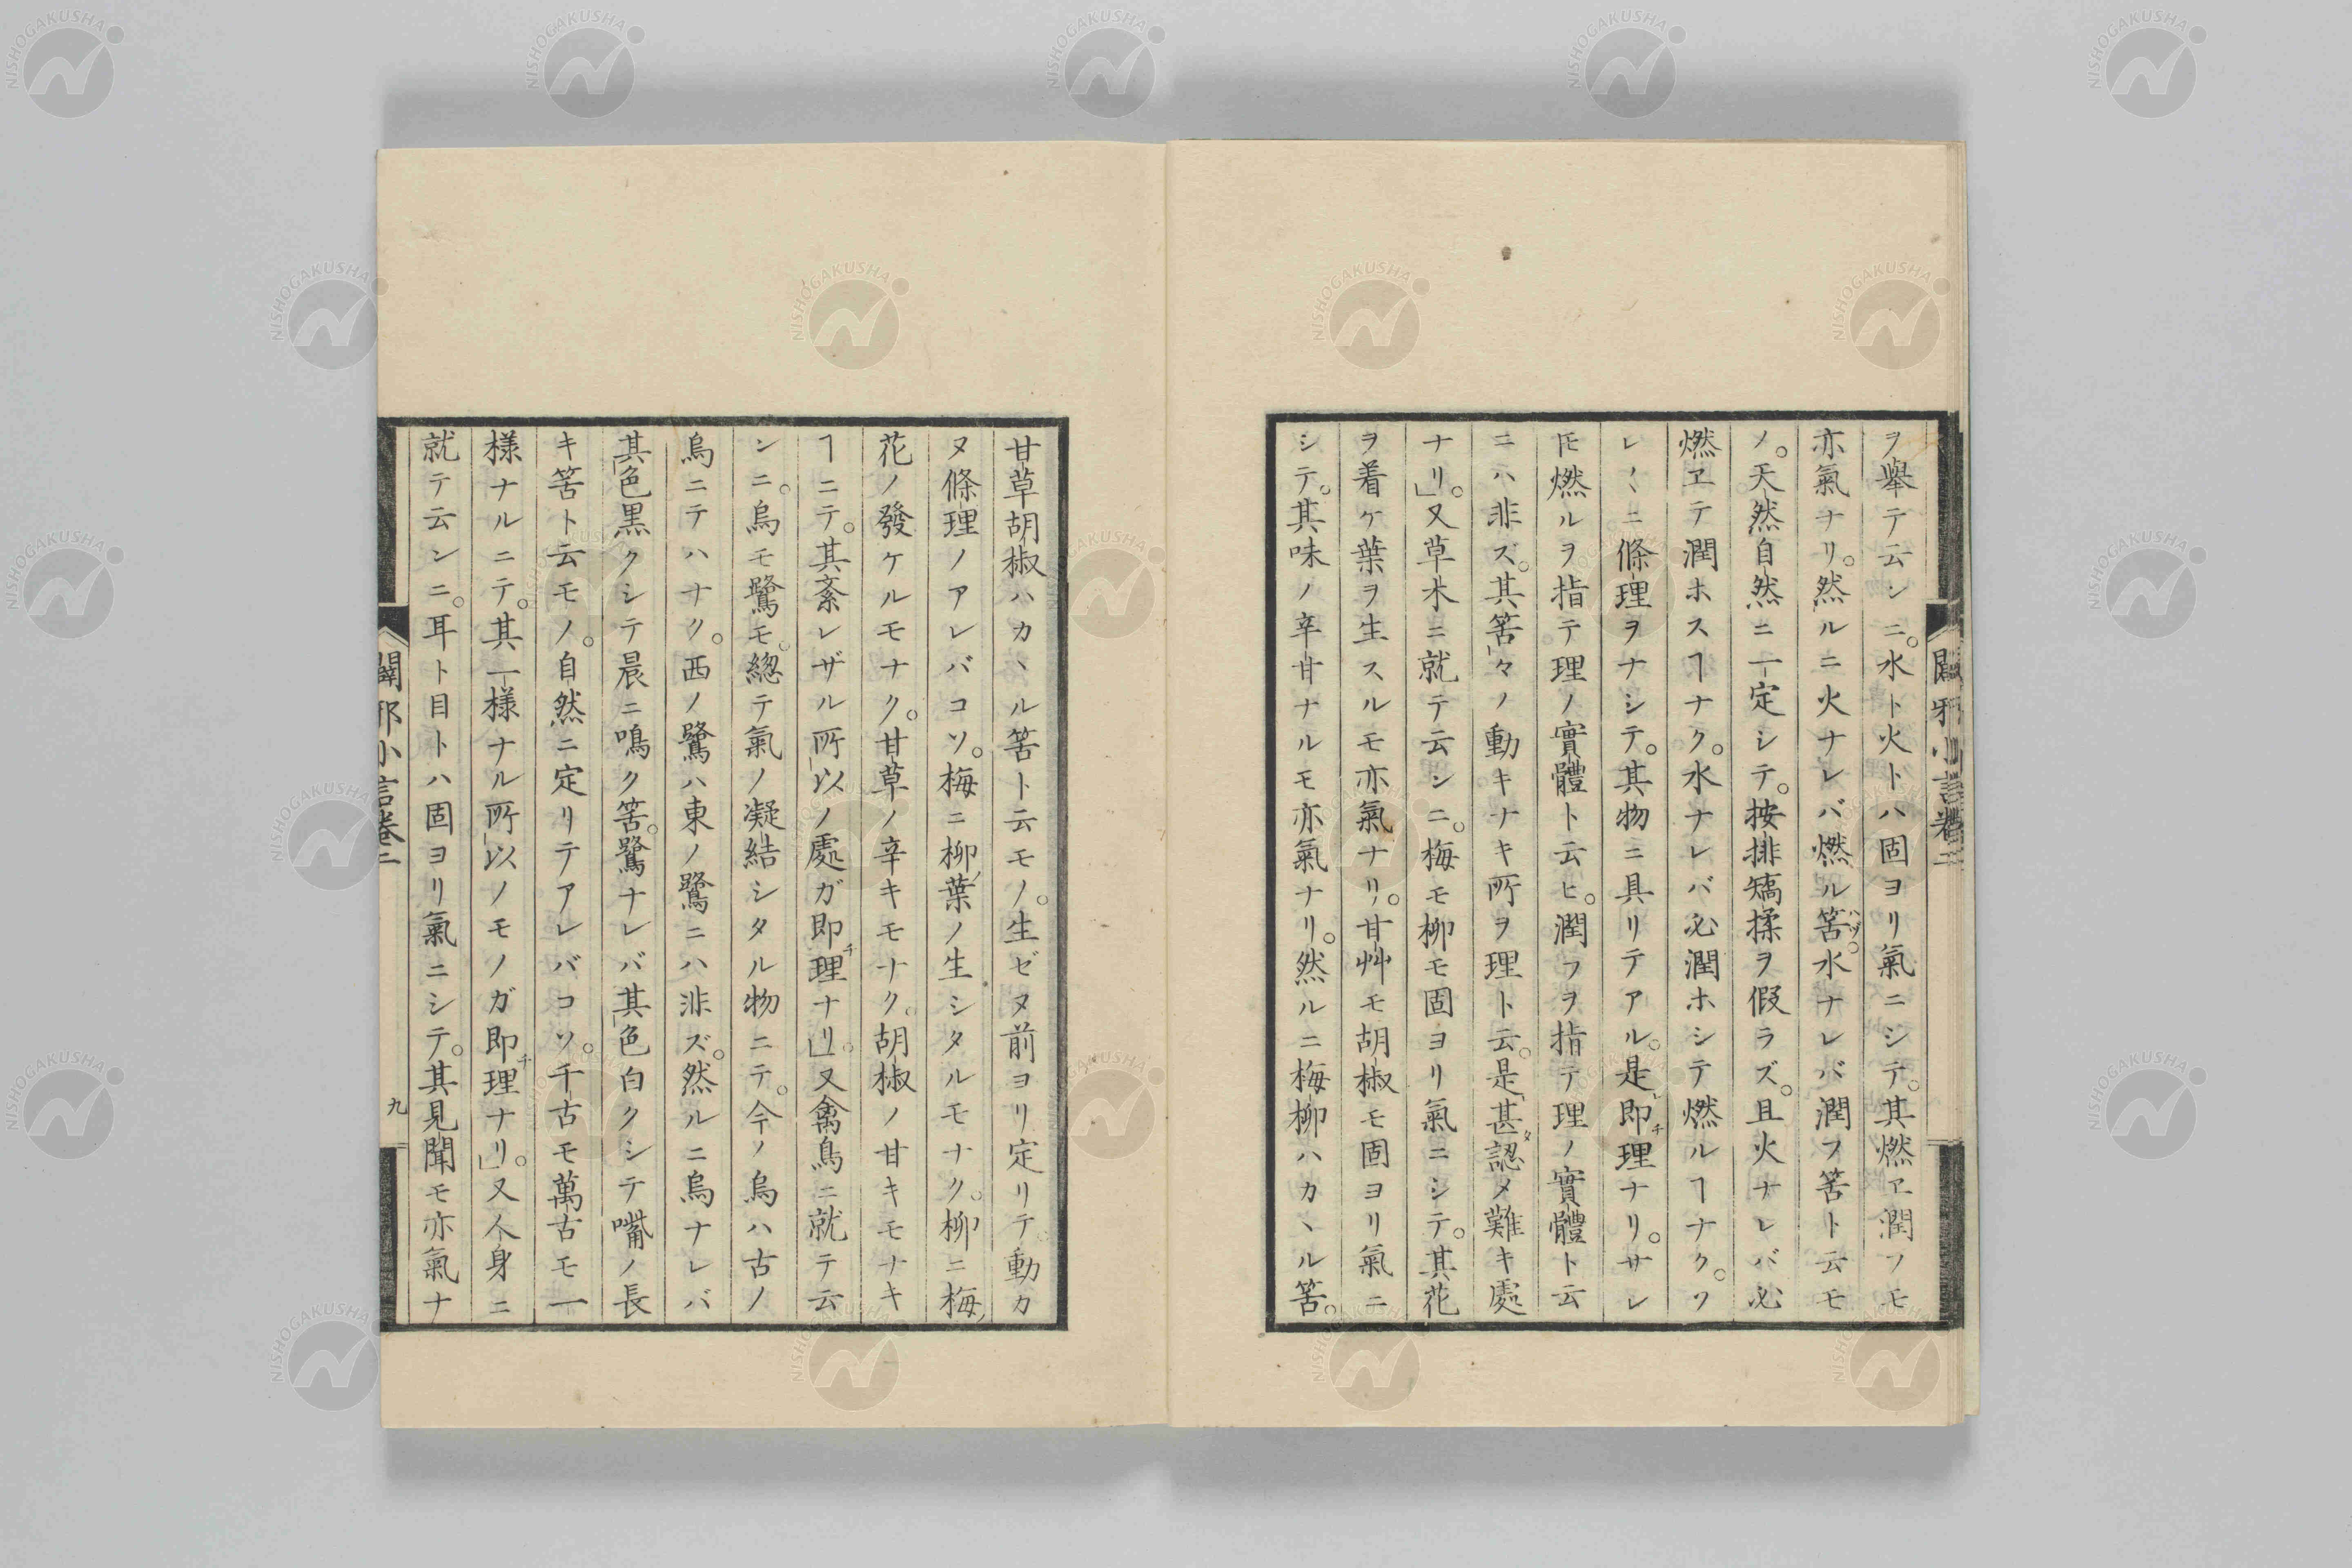 ヲ擧テ云ンニ。水ト火トハ固ヨリ氣ニシテ。其燃ヱ潤フモ
亦氣ナリ。然ルニ火ナレバ燃ル筈ハヅ。水ナレバ潤フ筈ト云モ
ノ。天然自然ニ一定シテ。按排矯揉ヲ假ラズ。且火ナレバ必
燃ヱテ潤ホスヿナク。水ナレバ必潤ホシテ燃ルヿナク。ソ
レ〱ニ條理ヲナシテ。其物ニ具リテアル。是即チ理ナリ。サレ
𪜈燃ルヲ指テ理ノ實體ト云ヒ。潤フヲ指テ理ノ實體ト云
ニハ非ズ。其筈々ノ動キナキ所ヲ理ト云。是甚タ認メ難キ處
ナリ」。又草木ニ就テ云ンニ。梅モ柳モ固ヨリ氣ニシテ。其花
ヲ着ケ葉ヲ生スルモ亦氣ナリ。甘艸モ胡椒モ固ヨリ氣ニ
シテ。其味ノ辛甘ナルモ亦氣ナリ。然ルニ梅柳ハカヽル筈。
闢邪小言卷二
甘草胡椒ハカヽル筈ト云モノ。生ゼヌ前ヨリ定リテ動カ
ヌ條理ノアレバコソ。梅ニ柳ノ葉ノ生シタルモナク。柳ニ梅ノ
花ノ發ケルモナク。甘草ノ辛キモナク。胡椒ノ甘キモナキ
ヿニテ。其紊レザル所以ノ處ガ即チ理ナリ」。又禽鳥ニ就テ云
ンニ。烏モ鷺モ。總テ氣ノ凝結シタル物ニテ。今ノ烏ハ古ノ
烏ニテハナク。西ノ鷺ハ東ノ鷺ニハ非ズ。然ルニ烏ナレバ
其色黒クシテ晨ニ鳴ク筈。鷺ナレバ其色白クシテ嘴ノ長
キ筈ト云モノ。自然ニ定リテアレバコソ。千古モ萬古モ一
樣ナルニテ。其一樣ナル所以ノモノガ即チ理ナリ」。又人身ニ
就テ云ンニ。耳ト目トハ固ヨリ氣ニシテ。其見聞モ亦氣ナ
闢邪小言卷二
九